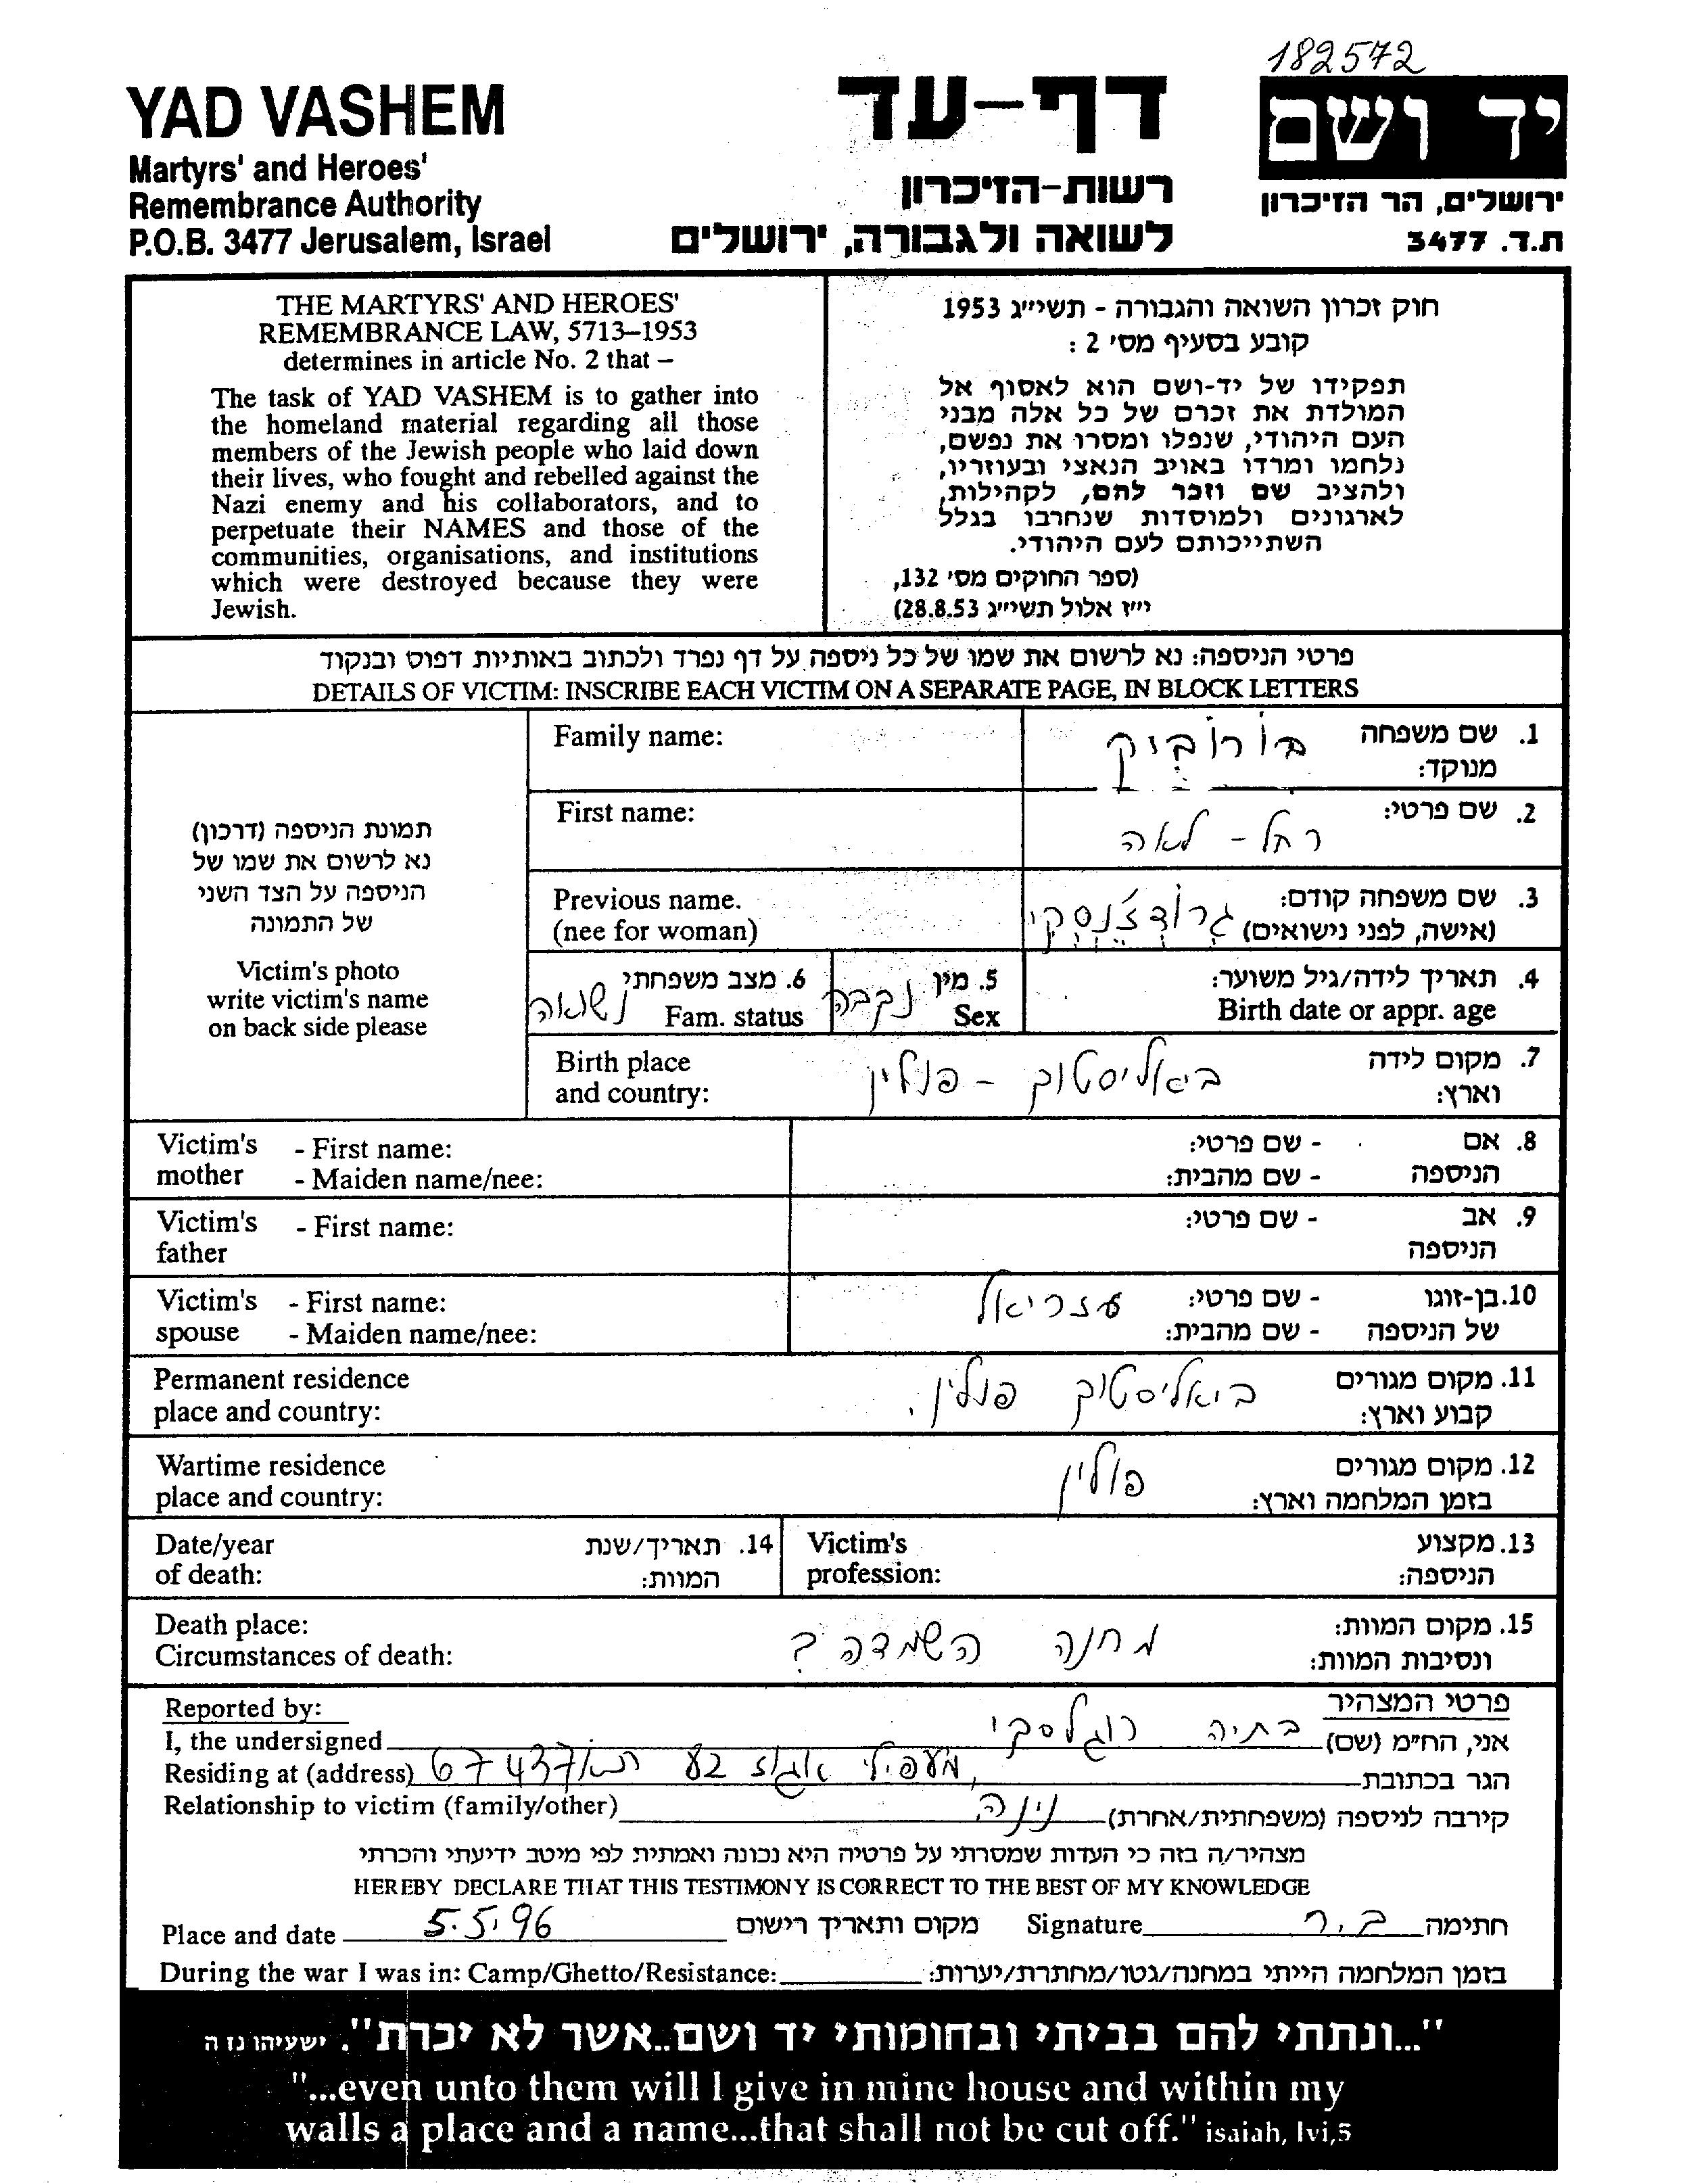 182572
YAD VASHEM
Martyrs' and Heroes'
Remembrance Authority
P.O.B. 3477 Jerusalem, Israel
דף-עד
רשות-הזיכרון
לשואה ולגבורה, ירושלים
יד ושם
ירושלים, הר הזיכרון
ת.ד. 3477
THE MARTYRS' AND HEROES'
REMEMBRANCE LAW, 5713–1953
determines in article No. 2 that –
The task of YAD VASHEM is to gather into
the homeland material regarding all those
members of the Jewish people who laid down
their lives, who fought and rebelled against the
Nazi enemy and his collaborators, and to
perpetuate their NAMES and those of the
communities, organisations, and institutions
which were destroyed because they were
Jewish.
חוק זכרון השואה והגבורה - תשי״ג 1953
קובע בסעיף מס' 2 :
תפקידו של יד-ושם הוא לאסוף אל
המולדת את זכרם של כל אלה מבני
העם היהודי, שנפלו ומסרו את נפשם,
נלחמו ומרדו באויב הנאצי ובעוזריו,
ולהציב שם וזכר להם, לקהילות,
לארגונים ולמוסדות שנחרבו בגלל
השתייכותם לעם היהודי.
(ספר החוקים מס' 132,
י״ז אלול תשי״ג 28.8.53)
פרטי הניספה: נא לרשום את שמו של כל ניספה על דף נפרד ולכתוב באותיות דפוס ובנקוד
DETAILS OF VICTIM: INSCRIBE EACH VICTIM ON A SEPARATE PAGE, IN BLOCK LETTERS
תמונת הניספה (דרכון)
נא לרשום את שמו של
הניספה על הצד השני
של התמונה
Victim's photo
write victim's name
on back side please
Family name:
1. שם משפחה
מנוקד:
בורוביק
First name:
2. שם פרטי:
רחל - לאה
Previous name.
(nee for woman)
3. שם משפחה קודם:
(אישה, לפני נישואים)
גרודז'נסקי
4. תאריך לידה/גיל משוער:
Birth date or appr. age
5. מין
Sex
נקבה
6. מצב משפחתי
Fam. status
נשואה
Birth place
and country:
7. מקום לידה
וארץ:
ביאליסטוק - פולין
Victim's mother
- First name:
- Maiden name/nee:
8. אם הניספה
- שם פרטי:
- שם מהבית:
Victim's father
- First name:
9. אב הניספה
- שם פרטי:
Victim's spouse
- First name:
- Maiden name/nee:
10. בן-זוגו של הניספה
- שם פרטי: עזריאל
- שם מהבית:
Permanent residence
place and country:
11. מקום מגורים
קבוע וארץ:
ביאליסטוק פולין.
Wartime residence
place and country:
12. מקום מגורים
בזמן המלחמה וארץ:
פולין
Date/year
of death:
14. תאריך/שנת
המוות:
Victim's
profession:
13. מקצוע
הניספה:
Death place:
Circumstances of death:
15. מקום המוות:
ונסיבות המוות:
מחנה השמדה ?
Reported by:
פרטי המצהיר
I, the undersigned
אני, הח״מ (שם) בתיה רוגלסקי
Residing at (address)
הגר בכתובת
מעפילי אגוז 82 ת"א 67437
Relationship to victim (family/other)
קירבה לניספה (משפחתית/אחרת) נינה
מצהיר/ה בזה כי העדות שמסרתי על פרטיה היא נכונה ואמתית לפי מיטב ידיעתי והכרתי
HEREBY DECLARE THAT THIS TESTIMONY IS CORRECT TO THE BEST OF MY KNOWLEDGE
Place and date 5.5.96 מקום ותאריך רישום
Signature ב.ר חתימה
During the war I was in: Camp/Ghetto/Resistance:
בזמן המלחמה הייתי במחנה/גטו/מחתרת/יערות:
"...ונתתי להם בביתי ובחומותי יד ושם..אשר לא יכרת". ישעיהו נז ה
"...even unto them will I give in mine house and within my
walls a place and a name...that shall not be cut off." isaiah, lvi,5